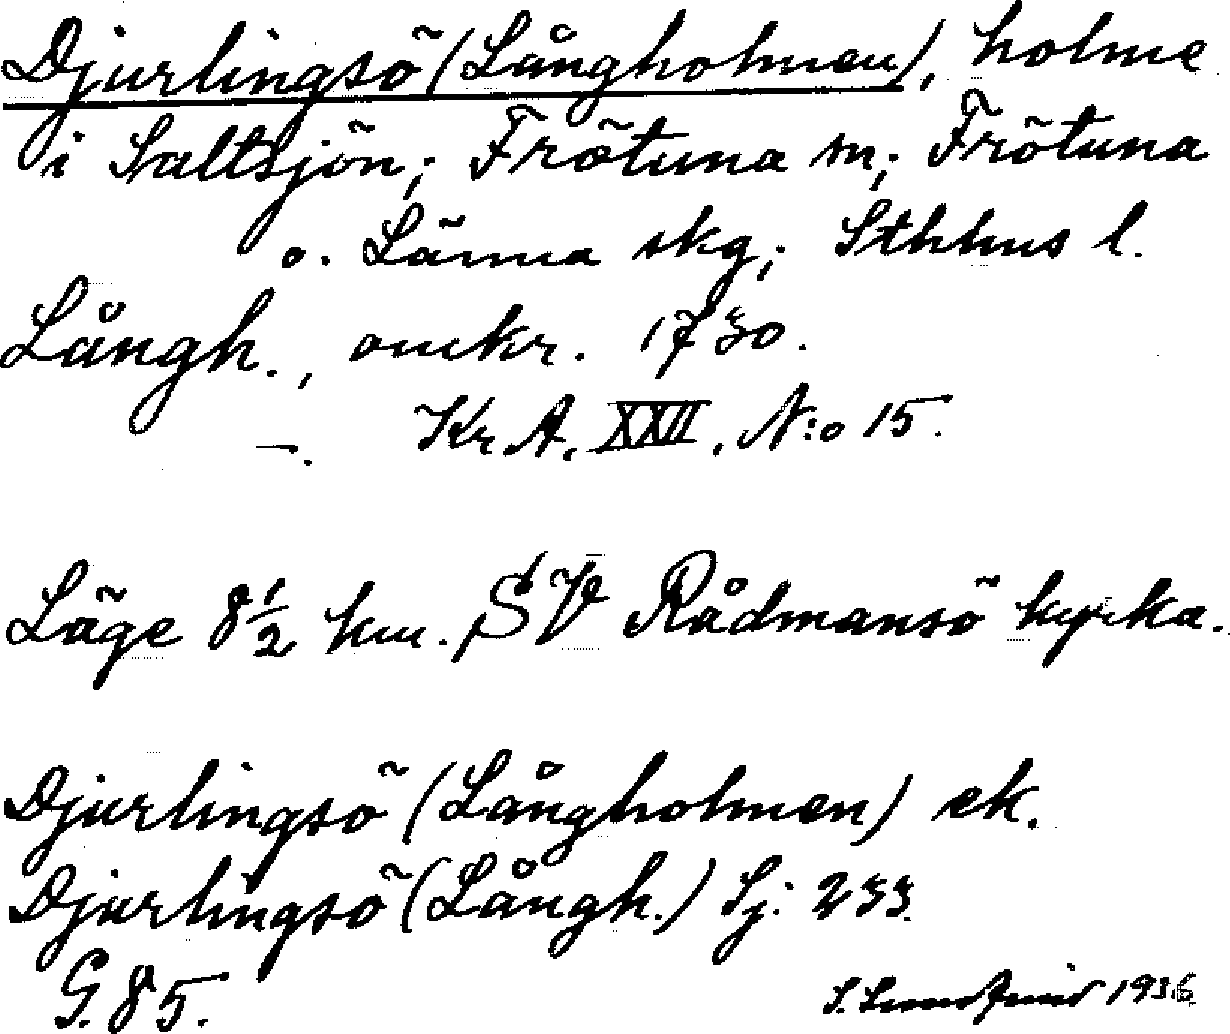 Djurlingsö (Långholmen), holme
i Saltsjön; Frötuna sn; Frötuna
o. Länna skg; Sthlms l.
Långh., omkr. 1730.
—. Kr A. XXII. N:o 15.
Läge 8½ km. SV Rådmansö kyrka.
Djurlingsö (Långholmen) ek.
Djurlingsö (Långh.) Sj: 233.
G. 85.
S. 1936